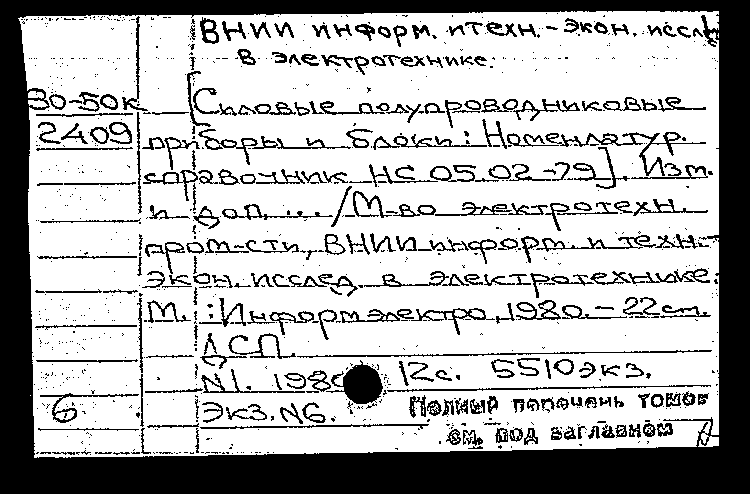 ВНИИ информ. и техн.-экон. иссл
в электротехнике.
80-50к [Силовые полупроводниковые
2409 приборы и блоки: Номенлатур.
справочник НС 05.02-79]. Изм.
и доп. ... /М-во электротехн.
пром-сти, ВНИИ информ. и техн.-
экон. исслед. в электротехнике.
М.: Информэлектро, 1980.- 22см.
ДСП.
N1. 1980 12с. 5510экз.
6 Экз.N6. Полный перечень томов
см. под заглавном